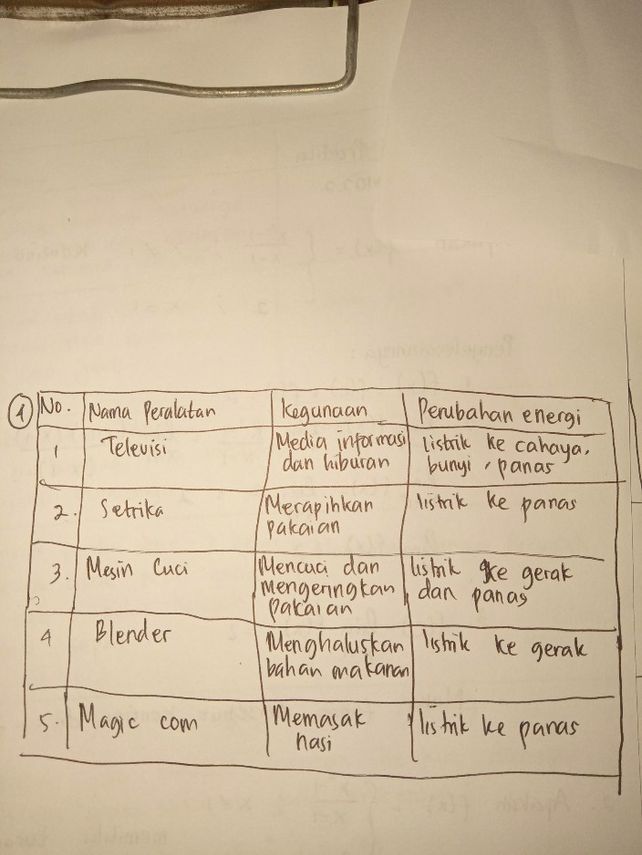 1
No. Nama Peralatan Kegunaan Perubahan energi
1 Televisi Media informasi listrik ke cahaya,
dan hiburan bunyi, panas
2. Setrika Merapihkan listrik ke panas
pakaian
3. Mesin Cuci Mencuci dan listrik ke gerak
Mengeringkan dan panas
pakaian
4 Blender Menghaluskan listrik ke gerak
bahan makanan
5. Magic com Memasak listrik ke panas
nasi